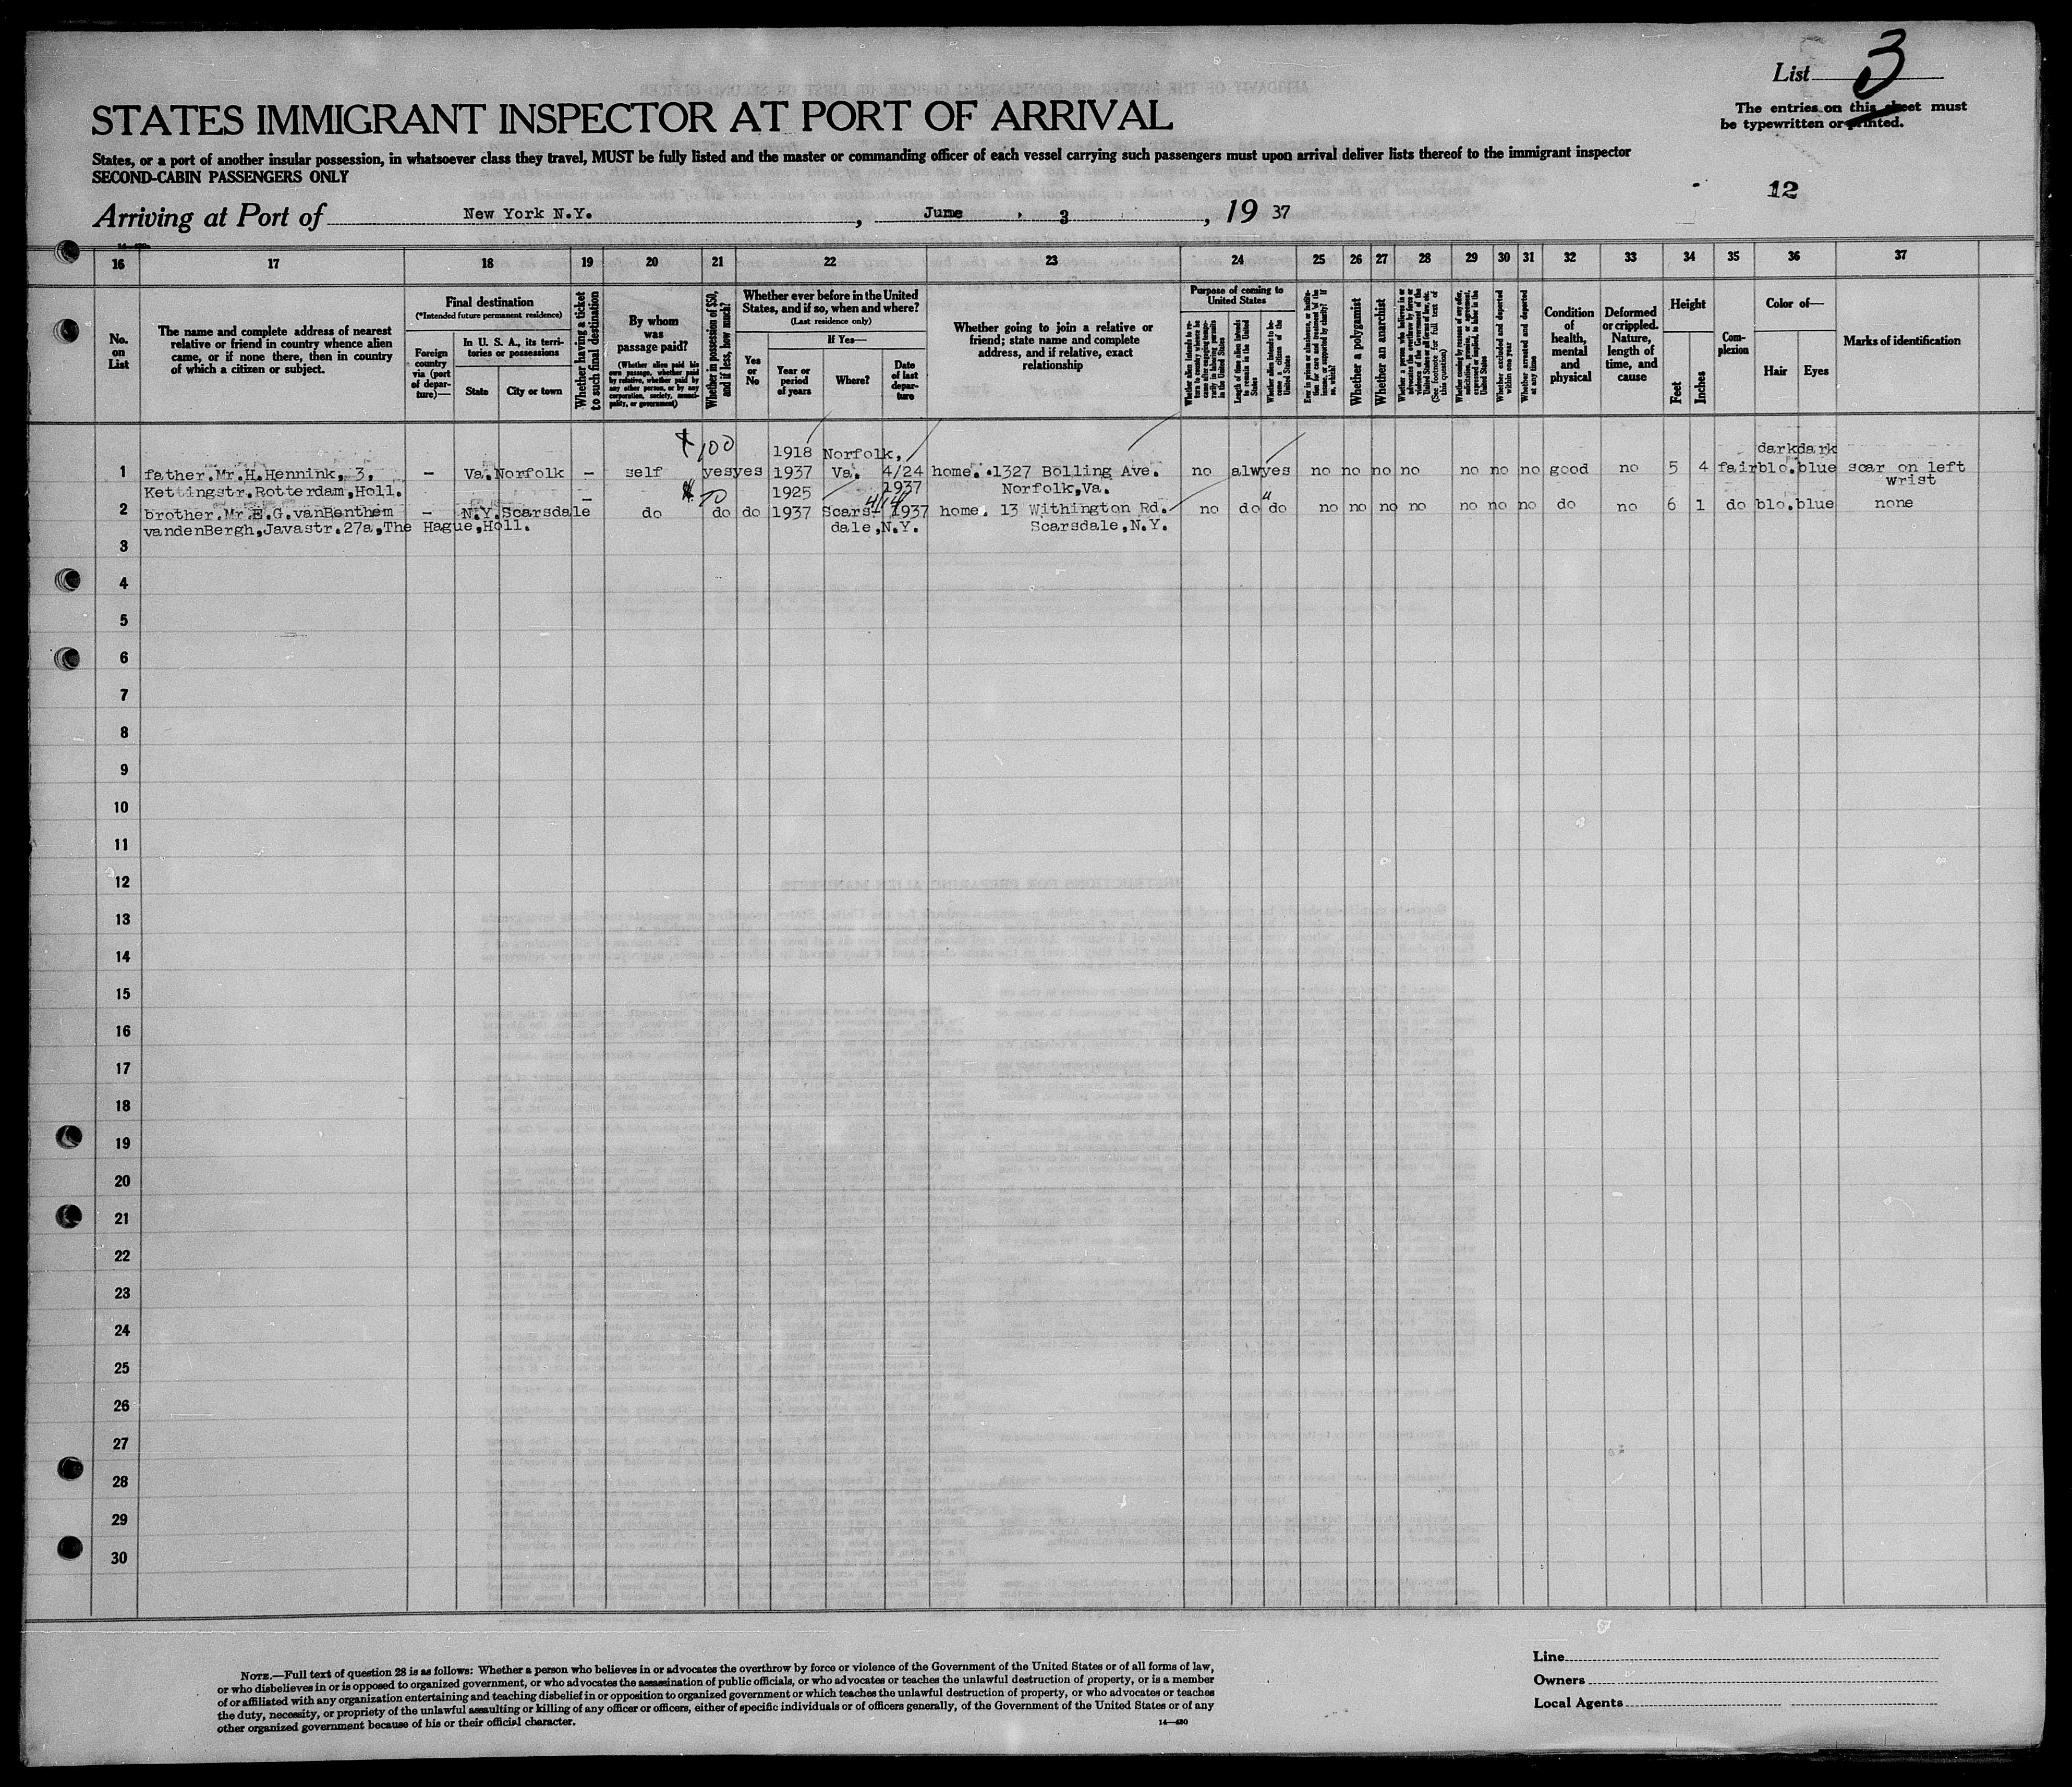 List 3
The entries on this sheet must
be typewritten or printed.
STATES IMMIGRANT INSPECTOR AT PORT OF ARRIVAL
States, or a port of another insular possession, in whatsoever class they travel, MUST be fully listed and the master or commanding officer of each vessel carrying such passengers must upon arrival deliver lists thereof to the immigrant inspector
SECOND-CABIN PASSENGERS ONLY
12
Arriving at Port of New York N.Y. , June 3 , 19 37
16 17 18 19 20 21 22 23 24 25 26 27 28 29 30 31 32 33 34 35 36 37
No. on List
The name and complete address of nearest relative or friend in country whence alien came, or if none there, then in country of which a citizen or subject.
Final destination
(*Intended future permanent residence)
Foreign country via (port of departure)—
In U. S. A., its territories or possessions
State
City or town
Whether having a ticket to such final destination
By whom was passage paid?
(Whether alien paid his own passage, whether paid by relative, whether paid by any other person, or by any corporation, society, municipality, or government)
Whether in possession of $50, and if less, how much?
Whether ever before in the United States, and if so, when and where?
(Last residence only)
Yes or No
If Yes—
Year or period of years
Where?
Date of last departure
Whether going to join a relative or friend; state name and complete address, and if relative, exact relationship
Purpose of coming to United States
Whether alien intends to return to country whence he came after engaging temporarily in laboring pursuits in the United States
Length of time alien intends to remain in the United States
Whether alien intends to become a citizen of the United States
Ever in prison or almshouse, or institution for care and treatment of the insane, or supported by charity? If so, which?
Whether a polygamist
Whether an anarchist
(See footnote for full text of this question)
Whether coming by reason of any offer, solicitation, promise, or agreement, expressed or implied, to labor in the United States
Whether excluded and deported within one year
Whether arrested and deported at any time
Condition of health, mental and physical
Deformed or crippled. Nature, length of time, and cause
Height
Feet
Inches
Complexion
Color of—
Hair
Eyes
Marks of identification
100 1918 Norfolk, dark dark
1 father.Mr.H.Hennink, 3, — Va. Norfolk — self yes yes 1937 Va. 4/24 home. 1327 Bolling Ave. no alw yes no no no no no no no good no 5 4 fair blo. blue scar on left
Kettingstr.Rotterdam,Holl. 1925 1937 Norfolk,Va. wrist
2 brother.Mr.E.G.vanBenthem — N.Y. Scarsdale — do do do 1937 Scars- 1937 home. 13 Withington Rd. no do do no no no no no no no do no 6 1 do blo. blue none
vandenBergh,Javastr.27a,The Hague,Holl. dale,N.Y. Scarsdale,N.Y.
3
4
5
6
7
8
9
10
11
12
13
14
15
16
17
18
19
20
21
22
23
24
25
26
27
28
29
30
NOTE.—Full text of question 28 is as follows: Whether a person who believes in or advocates the overthrow by force or violence of the Government of the United States or of all forms of law,
or who disbelieves in or is opposed to organized government, or who advocates the assassination of public officials, or who advocates or teaches the unlawful destruction of property, or is a member
of or affiliated with any organization entertaining and teaching disbelief in or opposition to organized government or which teaches the unlawful destruction of property, or who advocates or teaches
the duty, necessity, or propriety of the unlawful assaulting or killing of any officer or officers, either of specific individuals or of officers generally, of the Government of the United States or of any
other organized government because of his or their official character.
14—430
Line
Owners
Local Agents